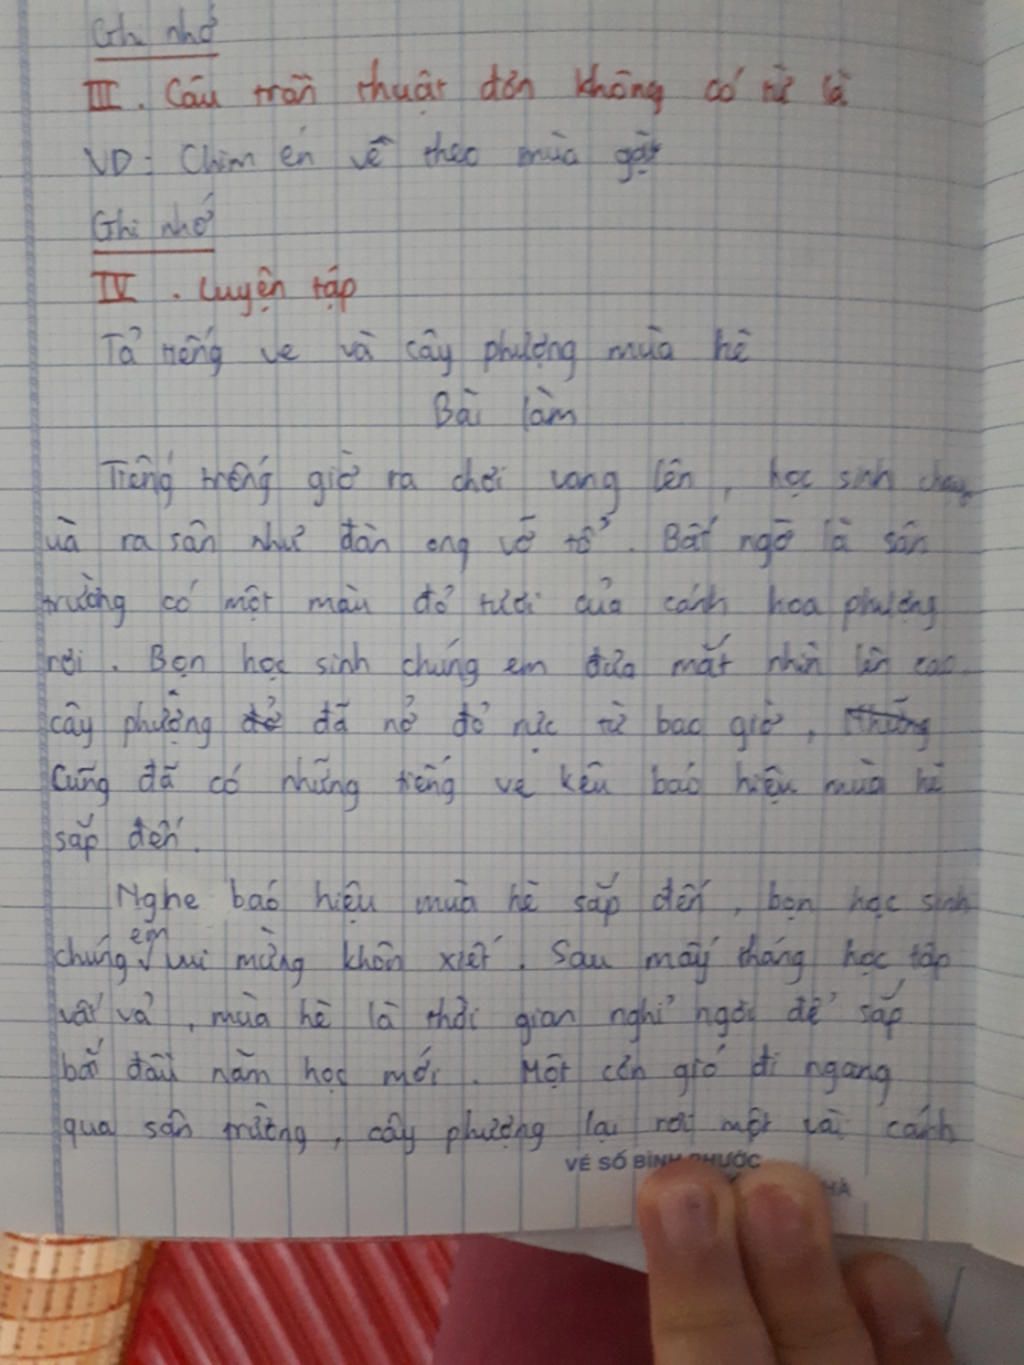 Ghi nhớ
III. Câu trần thuật đơn không có từ là
VD: Chim én về theo mùa gặt
Ghi nhớ
IV. Luyện tập
Tả tiếng ve và cây phượng mùa hè
Bài làm
Tiếng trống giờ ra chơi vang lên, học sinh chạy
ùa ra sân như đàn ong vỡ tổ. Bất ngờ là sân
trường có một màu đỏ tươi của cánh hoa phượng
rơi. Bọn học sinh chúng em đưa mắt nhìn lên cao
cây phượng đã nở đỏ rực từ bao giờ,
Cũng đã có những tiếng ve kêu báo hiệu mùa hè
sắp đến.
Nghe báo hiệu mùa hè sắp đến, bọn học sinh
chúng em vui mừng khôn xiết. Sau mấy tháng học tập
vất vả, mùa hè là thời gian nghỉ ngơi để sắp
bắt đầu năm học mới. Một cơn gió đi ngang
qua sân trường, cây phượng lại rơi một vài cánh
VÉ SỐ BÌNH PHƯỚC